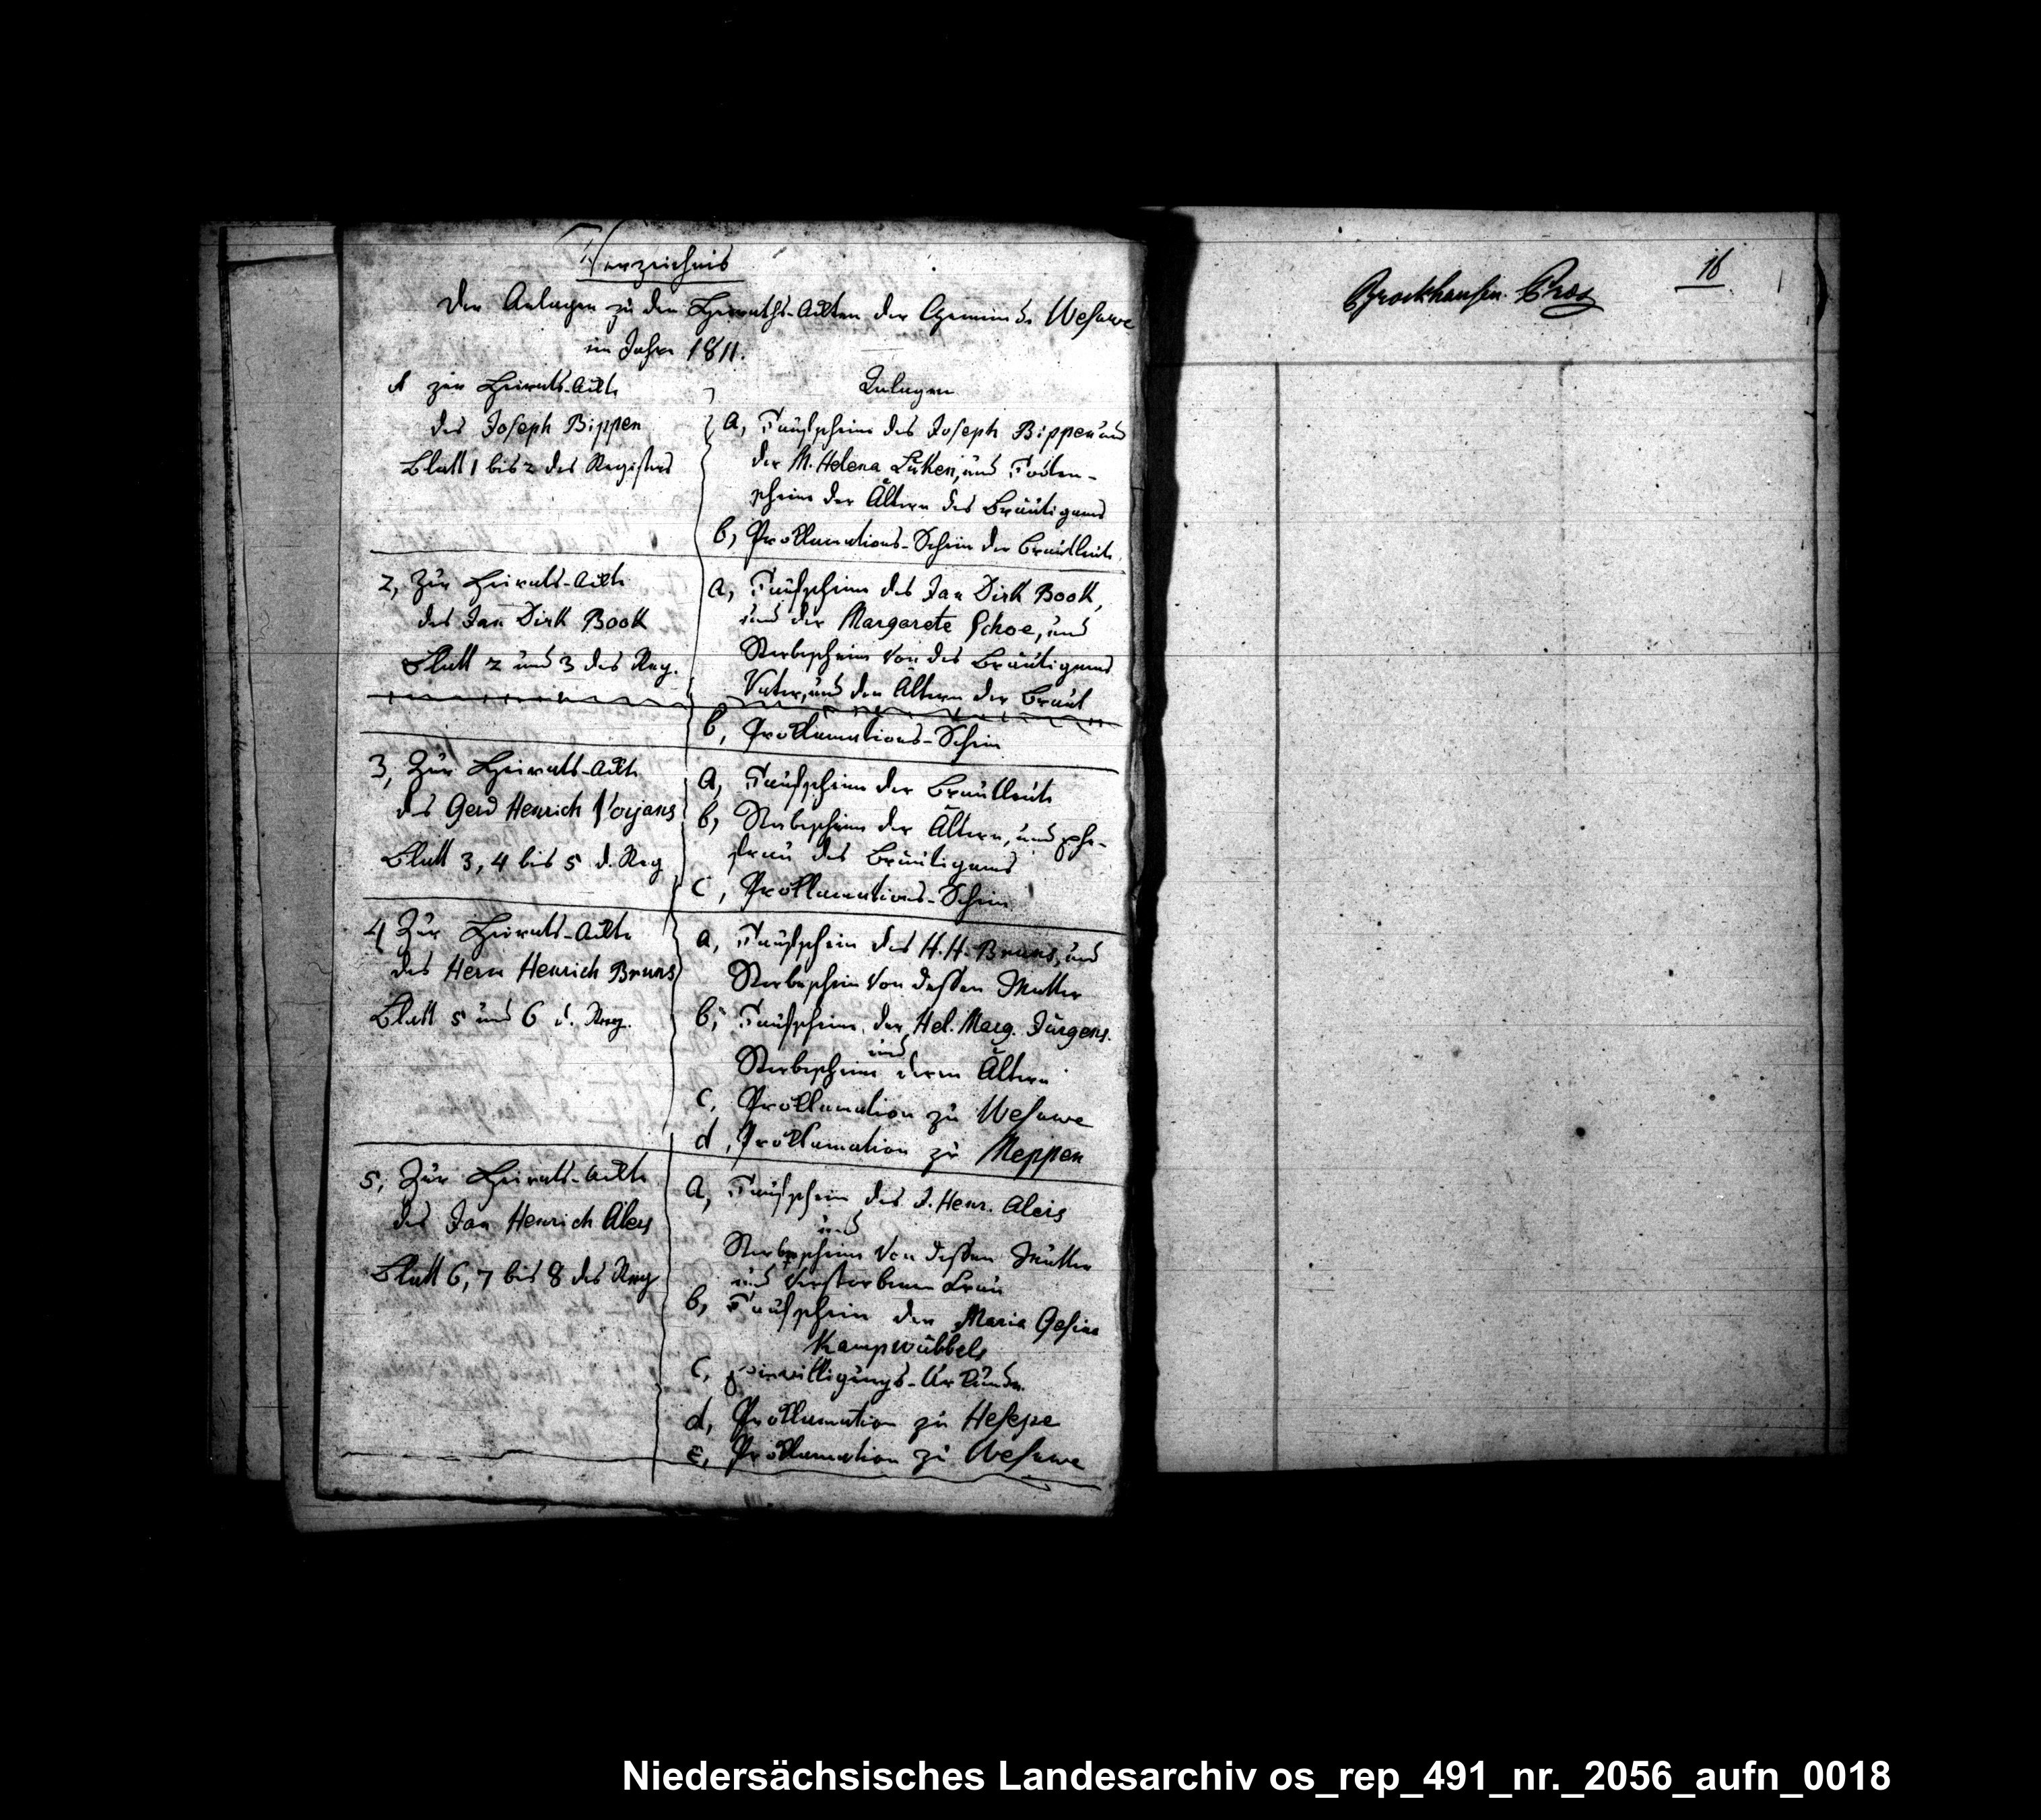 Verzeichnis
der Anlagen zu den Heiraths-Ackten der Gemeinde Wesuwe
im Jahre 1811.
1 zur Heirats-Ackte
des Joseph Bippen
Blatt 1 bis 2 des Registers
Anlagen
a, Taufscheine des Joseph Bippen und
der M. Helena Lüken, und Todten-
scheine der Ältern des Bräutigams
b, Procklamations-Schein der Brautleute
2, Zur Heirats-Ackte
des Jan Dirk Book
Blatt 2 und 3 des Reg.
a, Taufscheine des Jan Dirk Book,
und der Margarete Schoe, und
Sterbescheine von des Bräutigams
Vater, und den Ältern der Braut
b, Procklamations-Schein
3, Zur Heirats-Ackte
des Gerd Henrich
Blatt 3, 4 bis 5 d. Reg
a, Taufscheine der Brautleute
b, Sterbescheine der Ältern, und Ehe-
frau des Bräutigams
c, Procklamations-Schein
4 Zur Heirats-Ackte
des Herm Henrich Bruns
Blatt 5 und 6 d. Reg.
a, Taufschein des H. H. Bruns, und
Sterbeschein von dessen Mutter
b, Taufschein der Hel. Marg. Jürgens.
und
Sterbescheine deren Ältern
c, Procklamation zu Wesuwe
d, Procklamation zu Meppen
5, Zur Heirats-Ackte
des Jan Henrich
Blatt 6, 7 bis 8 des Reg
a, Taufschein des J. Henr.
und
Sterbescheine von dessen Mutter
und verstorbenen Frau
b, Taufschein der Maria Gesina
Kampwübbels
c, Einwilligungs-Urkunde.
d, Procklamation zu Hesepe
e, Procklamation zu Wesuwe
Brockhausen.
Niedersächsisches Landesarchiv os_rep_491_nr._2056_aufn_0018